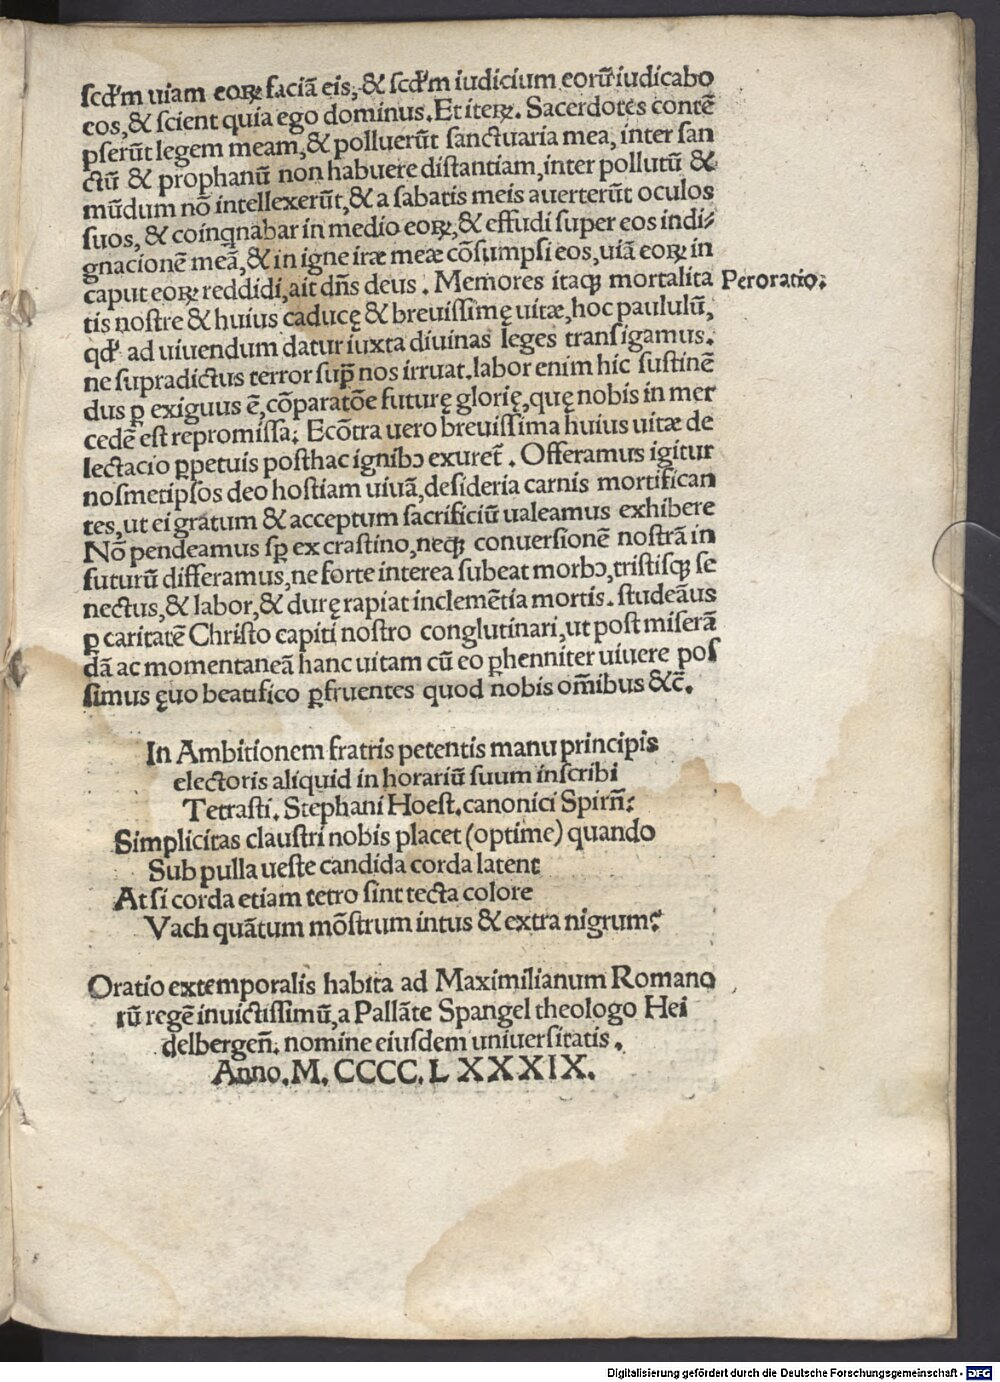 scđm uiam eoꝝ faciā eis, & scđm iudicium eorū iudicabo
eos, & scient quia ego dominus. Et iteꝝ. Sacerdotes contē
pserūt legem meam, & polluerūt sanctuaria mea, inter san
ctū & prophanū non habuere distantiam, inter pollutū &
mūdum nō intellexerūt, & a sabatis meis auerterūt oculos
suos, & coinqnabar in medio eoꝝ, & effudi super eos indi⸗
gnacionē meā, & in igne iræ meæ cōsumpsi eos, uiā eoꝝ in
caput eoꝝ reddidi, ait dn̄s deus. Memores itaqꝫ mortalita
Peroratio.
tis nostre & huius caducę & breuissimę uitæ, hoc paululū,
qđ ad uiuendum datur iuxta diuinas leges transigamus.
ne supradictus terror sup̄ nos irruat. labor enim hic sustinē
dus ꝑ exiguus ē, cōparatōe futurę glorię, quę nobis in mer
cedē est repromissa: Ecōtra uero breuissima huius uitæ de
lectacio ꝑpetuis posthac ignibꝰ exuret̄. Offeramus igitur
nosmetipsos deo hostiam uiuā, desideria carnis mortifican
tes, ut ei gratum & acceptum sacrificiū ualeamus exhibere
Nō pendeamus sꝑ ex crastino, neqꝫ conuersionē nostrā in
futurū differamus, ne forte interea subeat morbꝰ, tristisqꝫ se
nectus, & labor, & durę rapiat inclemētia mortis. studeāus
ꝑ caritatē Christo capiti nostro conglutinari, ut post miserā
dā ac momentaneā hanc uitam cū eo ꝑhenniter uiuere pos
simus ęuo beatifico ꝑfruentes quod nobis om̄ibus &c̄.
In Ambitionem fratris petentis manu principis
electoris aliquid in horariū suum inscribi
Tetrasti. Stephani Hoest. canonici Spirn̄:
Simplicitas claustri nobis placet (optime) quando
Sub pulla ueste candida corda latent
At si corda etiam tetro sint tecta colore
Vach quātum mōstrum intus & extra nigrum?
Oratio extemporalis habita ad Maximilianum Romano
rū regē inuictissimū, a Pallāte Spangel theologo Hei
delbergen̄. nomine eiusdem uniuersitatis.
Anno. M. CCCC. L XXXIX.
Digitalisierung gefördert durch die Deutsche Forschungsgemeinschaft - DFG